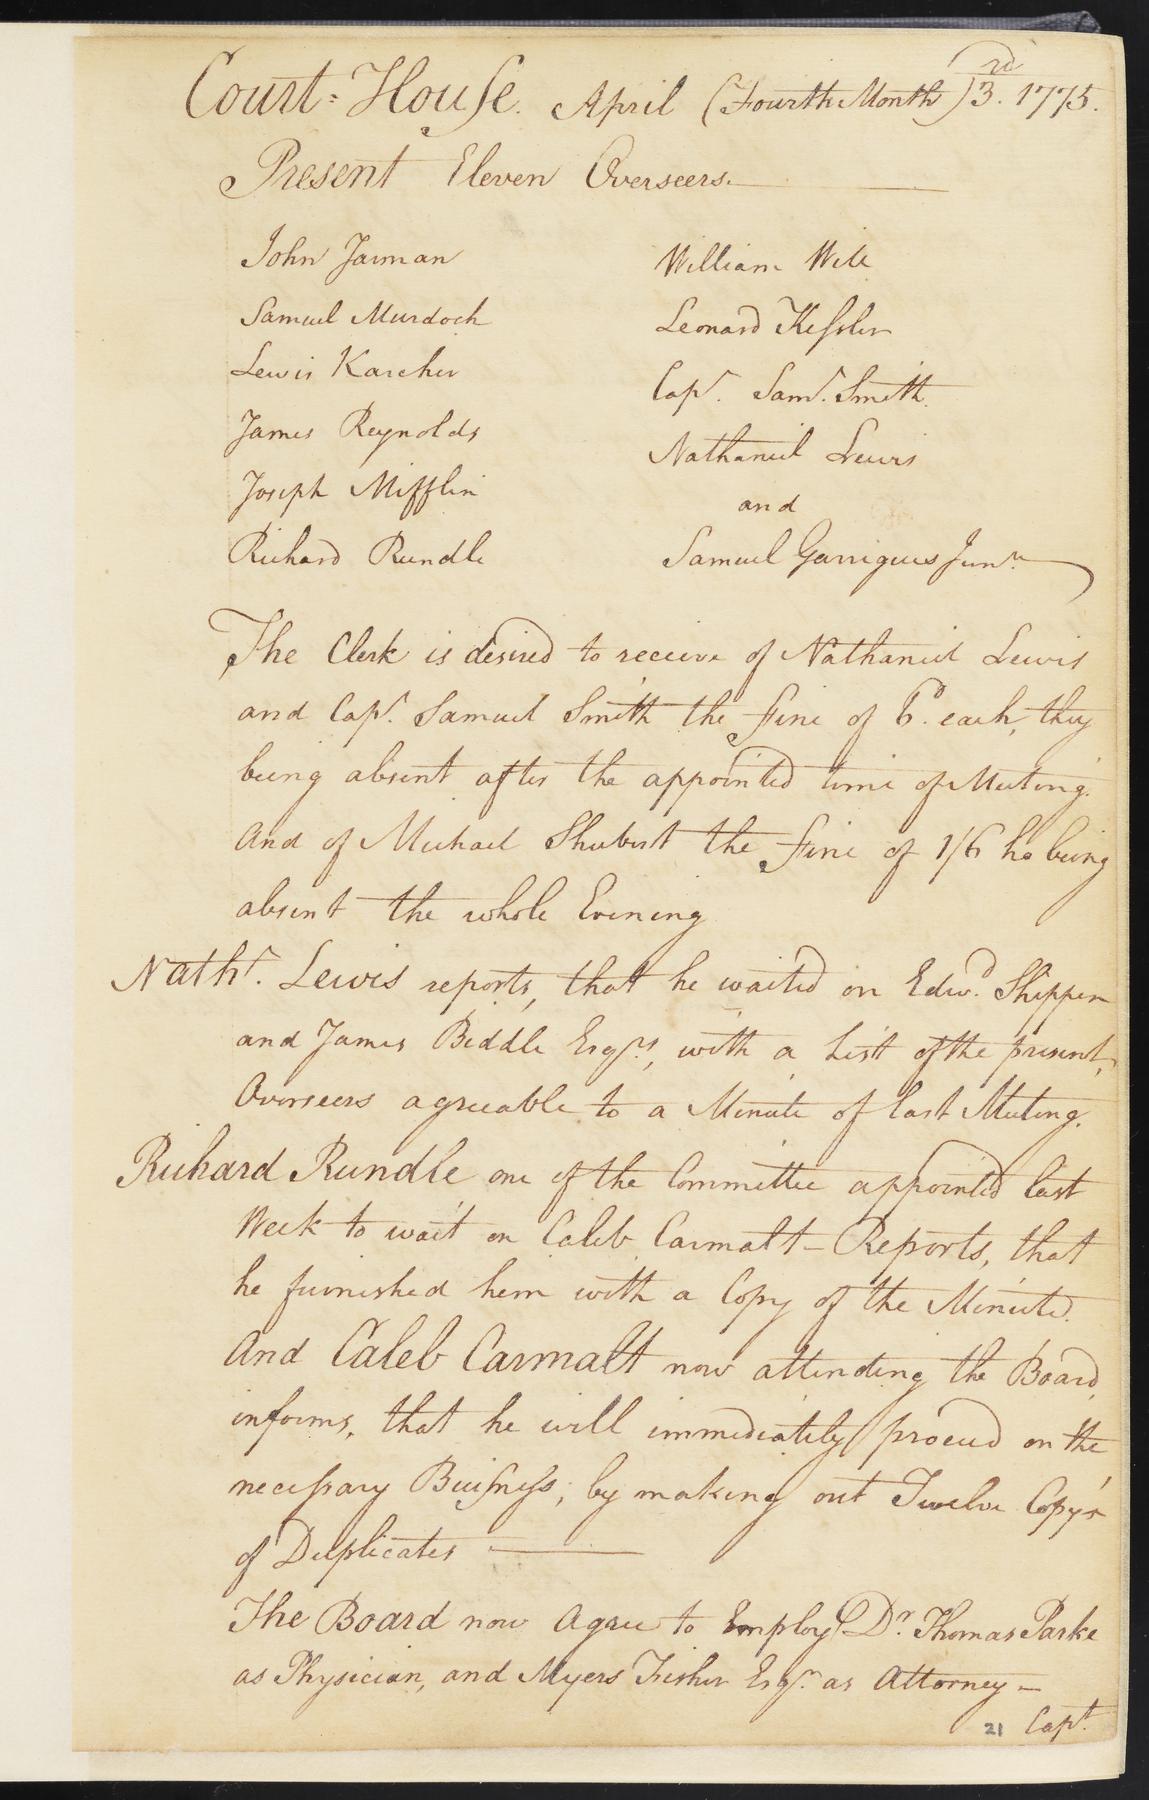 Court-House. April (Fourth Month) 3rd. 1775.
Present Eleven Overseers.
John Jarman
Samuel Murdoch
Lewis Karcher
James Reynolds
Joseph Mifflin
Richard Rundle
William Will
Leonard Kessler
Capt. Saml. Smith
Nathaniel Lewis
and
Samuel Garrigues Junr.
The Clerk is desired to receive of Nathaniel Lewis
and Capt. Samuel Smith the fine of 6d. each, they
being absent after the appointed time of Meeting.
And of Michael Shubert the fine of 1/6 he being
absent the whole Evening
Nathl. Lewis reports, that he waited on Edwd. Shippen
and James Biddle Esqrs, with a List of the present,
Overseers agreeable to a Minute of last Meeting.
Richard Rundle one of the Committee appointed last
Week to wait on Caleb Carmalt - Reports, that
he furnished him with a Copy of the Minute.
And Caleb Carmalt now attending the Board,
informs, that he will immediately proceed on the
necessary Buisness; by making out Twelve Copys
of Duplicates
The Board now Agree to Employ Dr. Thomas Parke
as Physician, and Myers Fisher Esqr. as Attorney -
21 Capt.